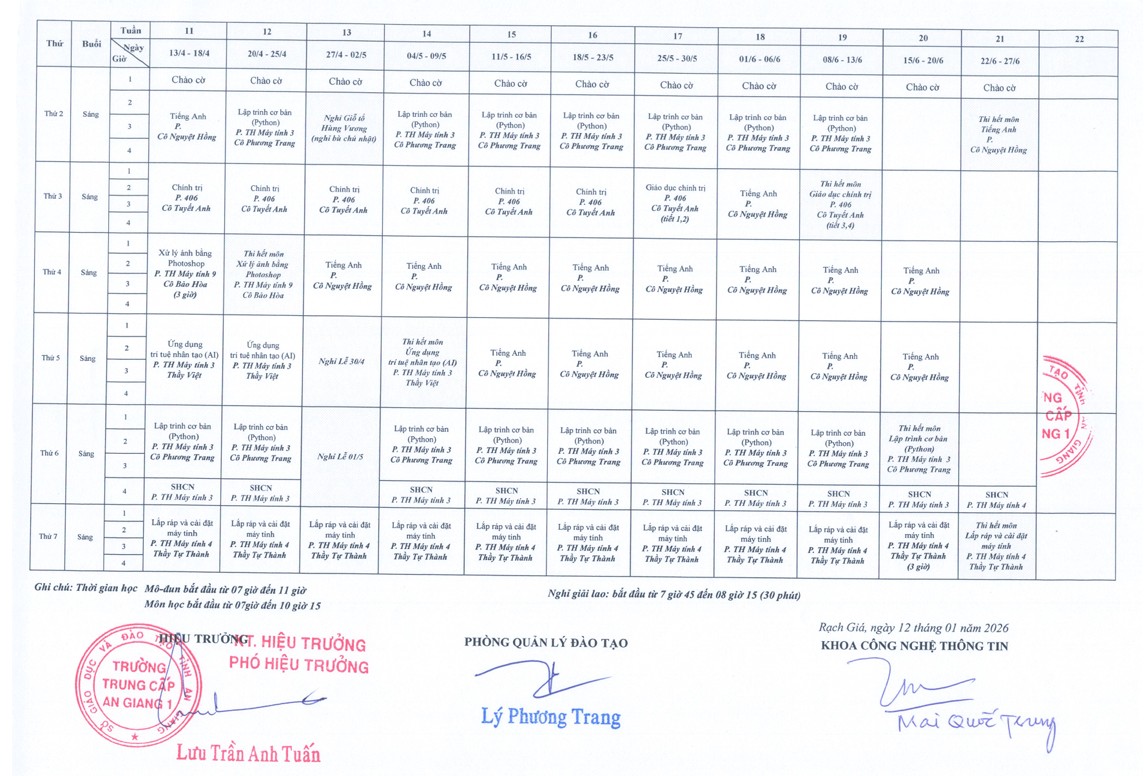 Thứ Buổi Tuần 11 12 13 14 15 16 17 18 19 20 21 22
Ngày
Giờ 13/4 - 18/4 20/4 - 25/4 27/4 - 02/5 04/5 - 09/5 11/5 - 16/5 18/5 - 23/5 25/5 - 30/5 01/6 - 06/6 08/6 - 13/6 15/6 - 20/6 22/6 - 27/6
Thứ 2 Sáng
1 Chào cờ Chào cờ Chào cờ Chào cờ Chào cờ Chào cờ Chào cờ Chào cờ Chào cờ Chào cờ Chào cờ
2
3
4
Tiếng Anh
P.
Cô Nguyệt Hồng
Lập trình cơ bản
(Python)
P. TH Máy tính 3
Cô Phương Trang
Nghỉ Giỗ tổ
Hùng Vương
(nghỉ bù chủ nhật)
Lập trình cơ bản
(Python)
P. TH Máy tính 3
Cô Phương Trang
Lập trình cơ bản
(Python)
P. TH Máy tính 3
Cô Phương Trang
Lập trình cơ bản
(Python)
P. TH Máy tính 3
Cô Phương Trang
Lập trình cơ bản
(Python)
P. TH Máy tính 3
Cô Phương Trang
Lập trình cơ bản
(Python)
P. TH Máy tính 3
Cô Phương Trang
Lập trình cơ bản
(Python)
P. TH Máy tính 3
Cô Phương Trang
Thi hết môn
Tiếng Anh
P.
Cô Nguyệt Hồng
Thứ 3 Sáng
1
2
3
4
Chính trị
P. 406
Cô Tuyết Anh
Chính trị
P. 406
Cô Tuyết Anh
Chính trị
P. 406
Cô Tuyết Anh
Chính trị
P. 406
Cô Tuyết Anh
Chính trị
P. 406
Cô Tuyết Anh
Chính trị
P. 406
Cô Tuyết Anh
Giáo dục chính trị
P. 406
Cô Tuyết Anh
(tiết 1,2)
Tiếng Anh
P.
Cô Nguyệt Hồng
Thi hết môn
Giáo dục chính trị
P. 406
Cô Tuyết Anh
(tiết 3,4)
Thứ 4 Sáng
1
2
3
4
Xử lý ảnh bằng
Photoshop
P. TH Máy tính 9
Cô Bảo Hòa
(3 giờ)
Thi hết môn
Xử lý ảnh bằng
Photoshop
P. TH Máy tính 9
Cô Bảo Hòa
Tiếng Anh
P.
Cô Nguyệt Hồng
Tiếng Anh
P.
Cô Nguyệt Hồng
Tiếng Anh
P.
Cô Nguyệt Hồng
Tiếng Anh
P.
Cô Nguyệt Hồng
Tiếng Anh
P.
Cô Nguyệt Hồng
Tiếng Anh
P.
Cô Nguyệt Hồng
Tiếng Anh
P.
Cô Nguyệt Hồng
Tiếng Anh
P.
Cô Nguyệt Hồng
Thứ 5 Sáng
1
2
3
4
Ứng dụng
trí tuệ nhân tạo (AI)
P. TH Máy tính 3
Thầy Việt
Ứng dụng
trí tuệ nhân tạo (AI)
P. TH Máy tính 3
Thầy Việt
Nghỉ Lễ 30/4
Thi hết môn
Ứng dụng
trí tuệ nhân tạo (AI)
P. TH Máy tính 3
Thầy Việt
Tiếng Anh
P.
Cô Nguyệt Hồng
Tiếng Anh
P.
Cô Nguyệt Hồng
Tiếng Anh
P.
Cô Nguyệt Hồng
Tiếng Anh
P.
Cô Nguyệt Hồng
Tiếng Anh
P.
Cô Nguyệt Hồng
Tiếng Anh
P.
Cô Nguyệt Hồng
TẠO TỈNH
NG
CẤP
NG 1
GIANG
Thứ 6 Sáng
1
2
3
Lập trình cơ bản
(Python)
P. TH Máy tính 3
Cô Phương Trang
Lập trình cơ bản
(Python)
P. TH Máy tính 3
Cô Phương Trang
Nghỉ Lễ 01/5
Lập trình cơ bản
(Python)
P. TH Máy tính 3
Cô Phương Trang
Lập trình cơ bản
(Python)
P. TH Máy tính 3
Cô Phương Trang
Lập trình cơ bản
(Python)
P. TH Máy tính 3
Cô Phương Trang
Lập trình cơ bản
(Python)
P. TH Máy tính 3
Cô Phương Trang
Lập trình cơ bản
(Python)
P. TH Máy tính 3
Cô Phương Trang
Lập trình cơ bản
(Python)
P. TH Máy tính 3
Cô Phương Trang
Thi hết môn
Lập trình cơ bản
(Python)
P. TH Máy tính 3
Cô Phương Trang
4 SHCN SHCN SHCN SHCN SHCN SHCN SHCN SHCN SHCN SHCN
P. TH Máy tính 3 P. TH Máy tính 3 P. TH Máy tính 3 P. TH Máy tính 3 P. TH Máy tính 3 P. TH Máy tính 3 P. TH Máy tính 3 P. TH Máy tính 3 P. TH Máy tính 3 P. TH Máy tính 4
Thứ 7 Sáng
1
2
3
4
Lắp ráp và cài đặt
máy tính
P. TH Máy tính 4
Thầy Tự Thành
Lắp ráp và cài đặt
máy tính
P. TH Máy tính 4
Thầy Tự Thành
Lắp ráp và cài đặt
máy tính
P. TH Máy tính 4
Thầy Tự Thành
Lắp ráp và cài đặt
máy tính
P. TH Máy tính 4
Thầy Tự Thành
Lắp ráp và cài đặt
máy tính
P. TH Máy tính 4
Thầy Tự Thành
Lắp ráp và cài đặt
máy tính
P. TH Máy tính 4
Thầy Tự Thành
Lắp ráp và cài đặt
máy tính
P. TH Máy tính 4
Thầy Tự Thành
Lắp ráp và cài đặt
máy tính
P. TH Máy tính 4
Thầy Tự Thành
Lắp ráp và cài đặt
máy tính
P. TH Máy tính 4
Thầy Tự Thành
Lắp ráp và cài đặt
máy tính
P. TH Máy tính 4
Thầy Tự Thành
(3 giờ)
Thi hết môn
Lắp ráp và cài đặt
máy tính
P. TH Máy tính 4
Thầy Tự Thành
Ghi chú: Thời gian học Mô-đun bắt đầu từ 07 giờ đến 11 giờ
Nghỉ giải lao: bắt đầu từ 7 giờ 45 đến 08 giờ 15 (30 phút)
Môn học bắt đầu từ 07giờ đến 10 giờ 15
Rạch Giá, ngày 12 tháng 01 năm 2026
HIỆU TRƯỞNG
KT. HIỆU TRƯỞNG
PHÓ HIỆU TRƯỞNG
PHÒNG QUẢN LÝ ĐÀO TẠO
KHOA CÔNG NGHỆ THÔNG TIN
SỞ GIÁO DỤC VÀ ĐÀO TẠO TỈNH AN GIANG
TRƯỜNG
TRUNG CẤP
AN GIANG 1
Lưu Trần Anh Tuấn
Lý Phương Trang
Mai Quốc Trung